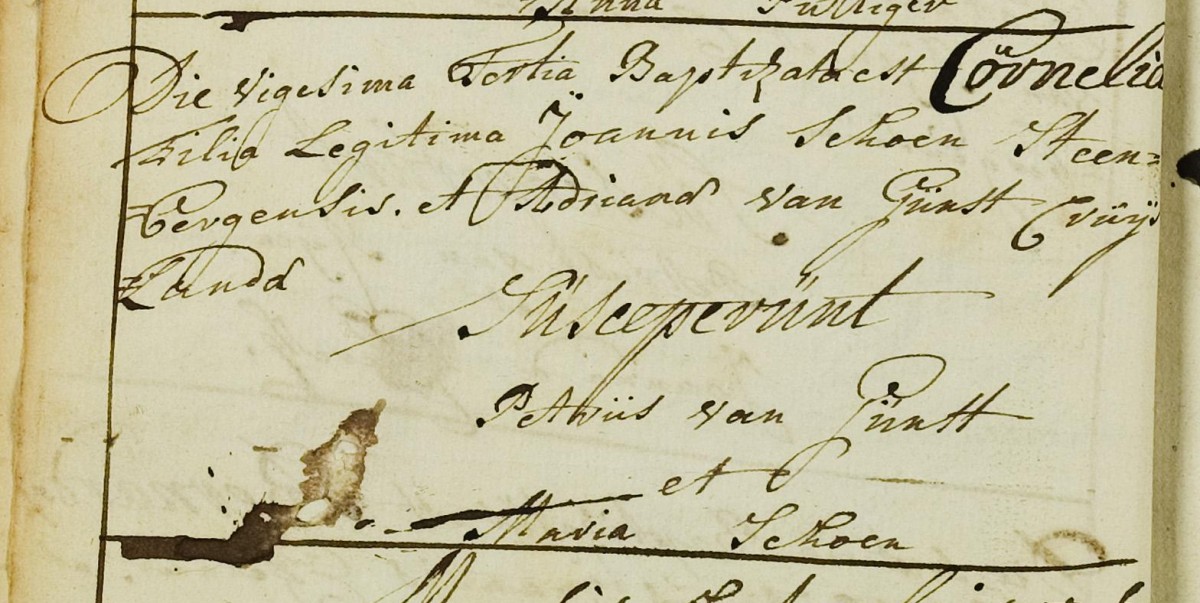 Anna
Die vigesima Tertia Baptizata est Cornelia
Filia Legitima Joannis Schoen Steen=
bergensis. et Adriana van Günst Crüijs
Landa
Süsceperünt
Petrüs van Günst
et
Maria Schoen